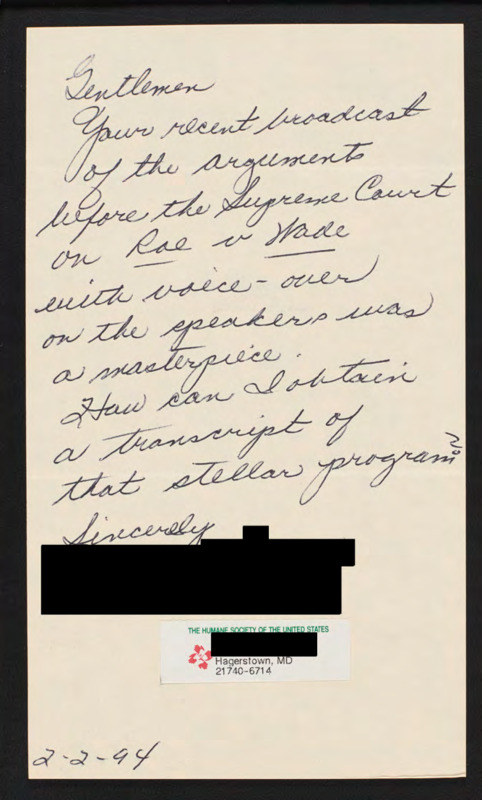 Gentlemen
Your recent broadcast
of the arguments
before the Supreme Court
on Roe v Wade
with voice-over
on the speakers was
a masterpiece.
How can I obtain
a transcript of
that stellar program?
Sincerely
THE HUMANE SOCIETY OF THE UNITED STATES
Hagerstown, MD
21740-6714
2-2-94